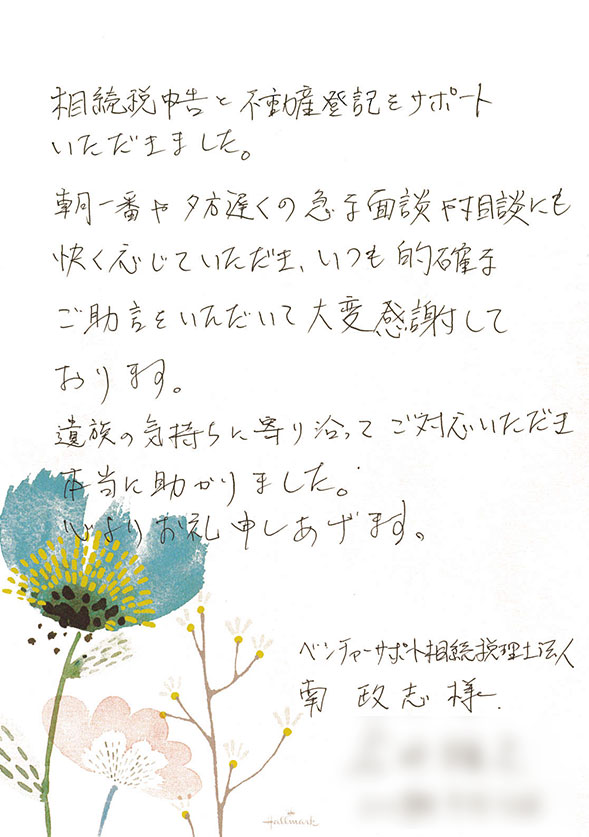 相続税申告と不動産登記をサポート
いただきました。
朝一番や夕方遅くの急な面談や相談にも
快く応じていただき、いつも的確な
ご助言をいただいて大変感謝して
おります。
遺族の気持ちに寄り沿ってご対応いただき
本当に助かりました。
心よりお礼申しあげます。
ベンチャーサポート相続税理士法人
南 政志 様
Hallmark